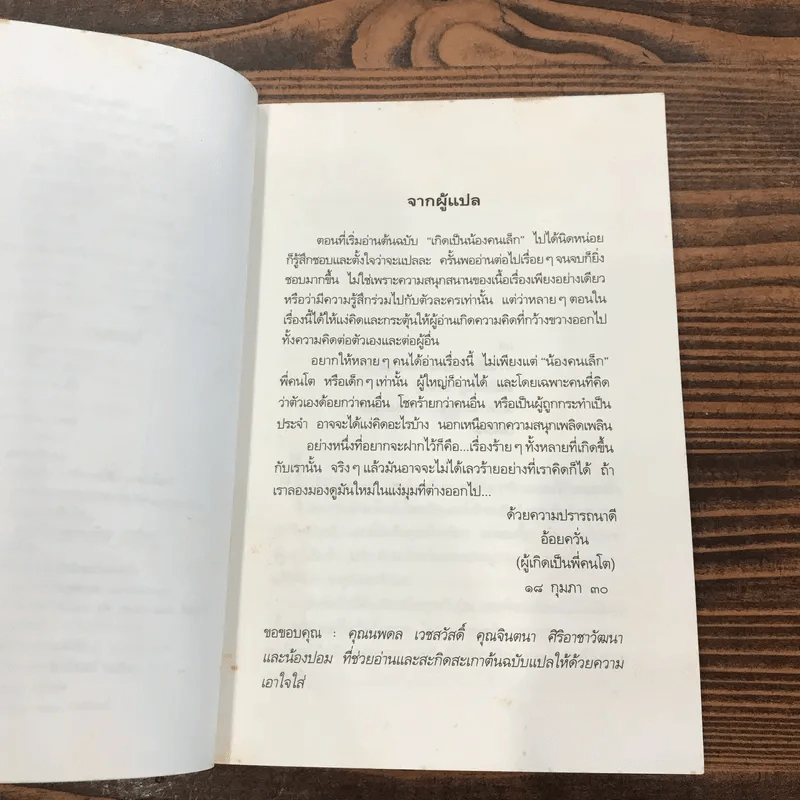 จากผู้แปล
ตอนที่เริ่มอ่านต้นฉบับ "เกิดเป็นน้องคนเล็ก" ไปได้นิดหน่อย
ก็รู้สึกชอบและตั้งใจว่าจะแปลละ ครั้นพออ่านต่อไปเรื่อยๆจนจบก็ยิ่ง
ชอบมากขึ้น ไม่ใช่เพราะความสนุกสนานของเนื้อเรื่องเพียงอย่างเดียว
หรือว่ามีความรู้สึกร่วมไปกับตัวละครเท่านั้น แต่ว่าหลายๆตอนใน
เรื่องนี้ได้ให้แง่คิดและกระตุ้นให้ผู้อ่านเกิดความคิดที่กว้างขวางออกไป
ทั้งความคิดต่อตัวเองและต่อผู้อื่น
อยากให้หลายๆคนได้อ่านเรื่องนี้ ไม่เพียงแต่ "น้องคนเล็ก"
พี่คนโต หรือเด็กๆเท่านั้น ผู้ใหญ่ก็อ่านได้ และโดยเฉพาะคนที่คิด
ว่าตัวเองด้อยกว่าคนอื่น โชคร้ายกว่าคนอื่น หรือเป็นผู้ถูกกระทำเป็น
ประจำ อาจจะได้แง่คิดอะไรบ้าง นอกเหนือจากความสนุกเพลิดเพลิน
อย่างหนึ่งที่อยากจะฝากไว้ก็คือ...เรื่องร้ายๆทั้งหลายที่เกิดขึ้น
กับเรานั้น จริงๆแล้วมันอาจจะไม่ได้เลวร้ายอย่างที่เราคิดก็ได้ ถ้า
เราลองมองดูมันใหม่ในแง่มุมที่ต่างออกไป...
ด้วยความปรารถนาดี
อ้อยควั่น
(ผู้เกิดเป็นพี่คนโต)
๑๘ กุมภา ๓๐
ขอขอบคุณ : คุณนพดล เวชสวัสดิ์ คุณจินตนา ศิริอาชาวัฒนา
และน้องปอม ที่ช่วยอ่านและสะกิดสะเกาต้นฉบับแปลให้ด้วยความ
เอาใจใส่